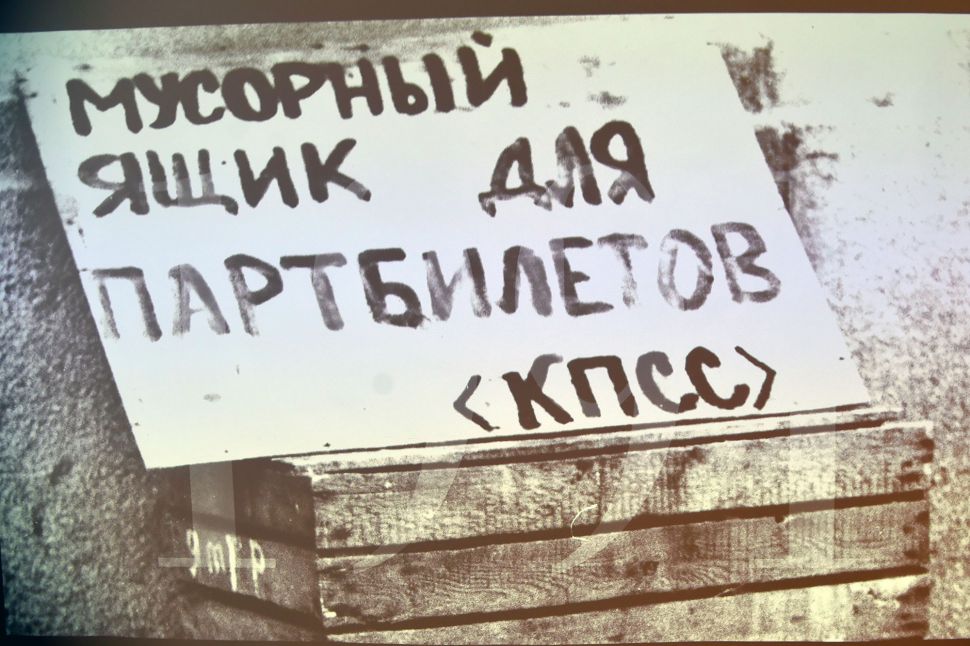 МУСОРНЫЙ
ЯЩИК ДЛЯ
ПАРТБИЛЕТОВ
<КПСС>